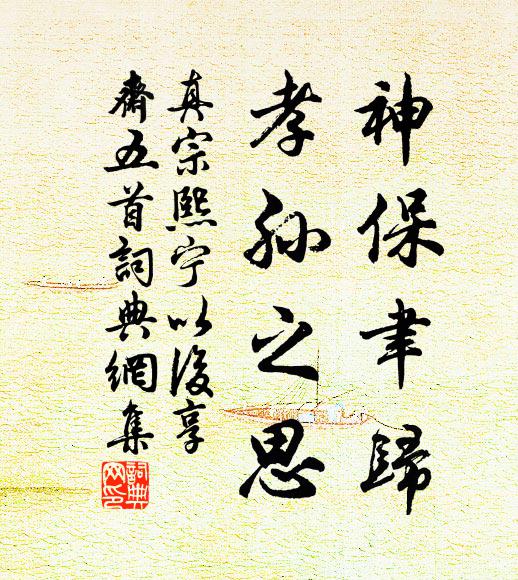 神保聿歸
孝孫之思
真宗熙宁以後享
齋五首詞典網集
詞典
网印